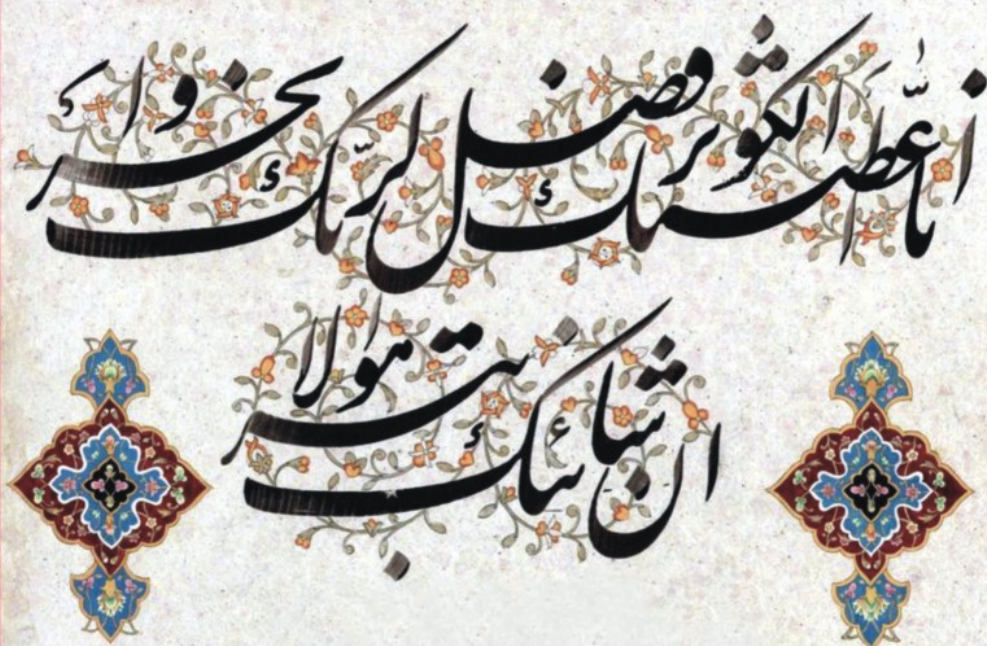 انا اعطيناك الكوثر فصل لربك وانحر
ان شانئك هو الابتر